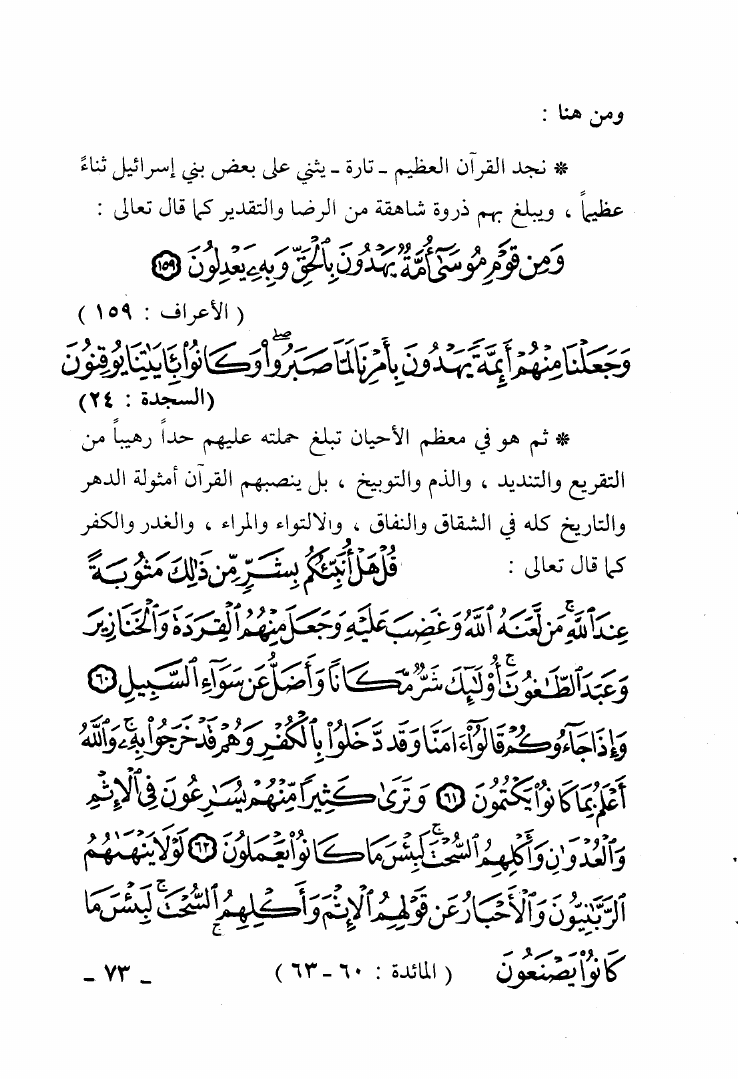 ومن هنا :
* نجد القرآن العظيم ـ تارة ـ يثني على بعض بني إسرائيل ثناءً
عظيماً ، ويبلغ بهم ذروة شاهقة من الرضا والتقدير كما قال تعالى :
وَمِن قَوْمِ مُوسَىٰٓ أُمَّةٌ يَهْدُونَ بِٱلْحَقِّ وَبِهِۦ يَعْدِلُونَ ١٥٩
( الأعراف : ١٥٩ )
وَجَعَلْنَا مِنْهُمْ أَئِمَّةً يَهْدُونَ بِأَمْرِنَا لَمَّا صَبَرُوا۟ ۖ وَكَانُوا۟ بِـَٔايَٰتِنَا يُوقِنُونَ
(السجدة : ٢٤)
* ثم هو في معظم الأحيان تبلغ حملته عليهم حداً رهيباً من
التقريع والتنديد ، والذم والتوبيخ ، بل ينصبهم القرآن أمثولة الدهر
والتاريخ كله في الشقاق والنفاق ، والالتواء والمراء ، والغدر والكفر
كما قال تعالى : قُلْ هَلْ أُنَبِّئُكُم بِشَرٍّ مِّن ذَٰلِكَ مَثُوبَةً
عِندَ ٱللَّهِ ۚ مَن لَّعَنَهُ ٱللَّهُ وَغَضِبَ عَلَيْهِ وَجَعَلَ مِنْهُمُ ٱلْقِرَدَةَ وَٱلْخَنَازِيرَ
وَعَبَدَ ٱلطَّٰغُوتَ ۚ أُو۟لَٰٓئِكَ شَرٌّ مَّكَانًا وَأَضَلُّ عَن سَوَآءِ ٱلسَّبِيلِ ٦٠
وَإِذَا جَآءُوكُمْ قَالُوٓا۟ ءَامَنَّا وَقَد دَّخَلُوا۟ بِٱلْكُفْرِ وَهُمْ قَدْ خَرَجُوا۟ بِهِۦ ۚ وَٱللَّهُ
أَعْلَمُ بِمَا كَانُوا۟ يَكْتُمُونَ ٦١ وَتَرَىٰ كَثِيرًا مِّنْهُمْ يُسَٰرِعُونَ فِى ٱلْإِثْمِ
وَٱلْعُدْوَٰنِ وَأَكْلِهِمُ ٱلسُّحْتَ ۚ لَبِئْسَ مَا كَانُوا۟ يَعْمَلُونَ ٦٢ لَوْلَا يَنْهَىٰهُمُ
ٱلرَّبَّٰنِيُّونَ وَٱلْأَحْبَارُ عَن قَوْلِهِمُ ٱلْإِثْمَ وَأَكْلِهِمُ ٱلسُّحْتَ ۚ لَبِئْسَ مَا
كَانُوا۟ يَصْنَعُونَ ( المائدة : ٦٠ ـ ٦٣ ) ـ ٧٣ ـ